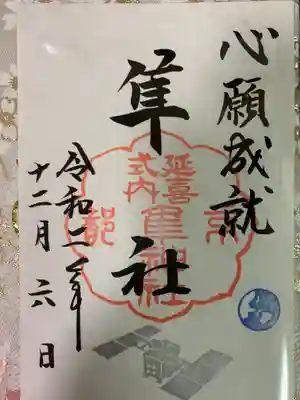 心願成就
隼社
令和二年
十二月六日
延喜
式内
京都
隼神社